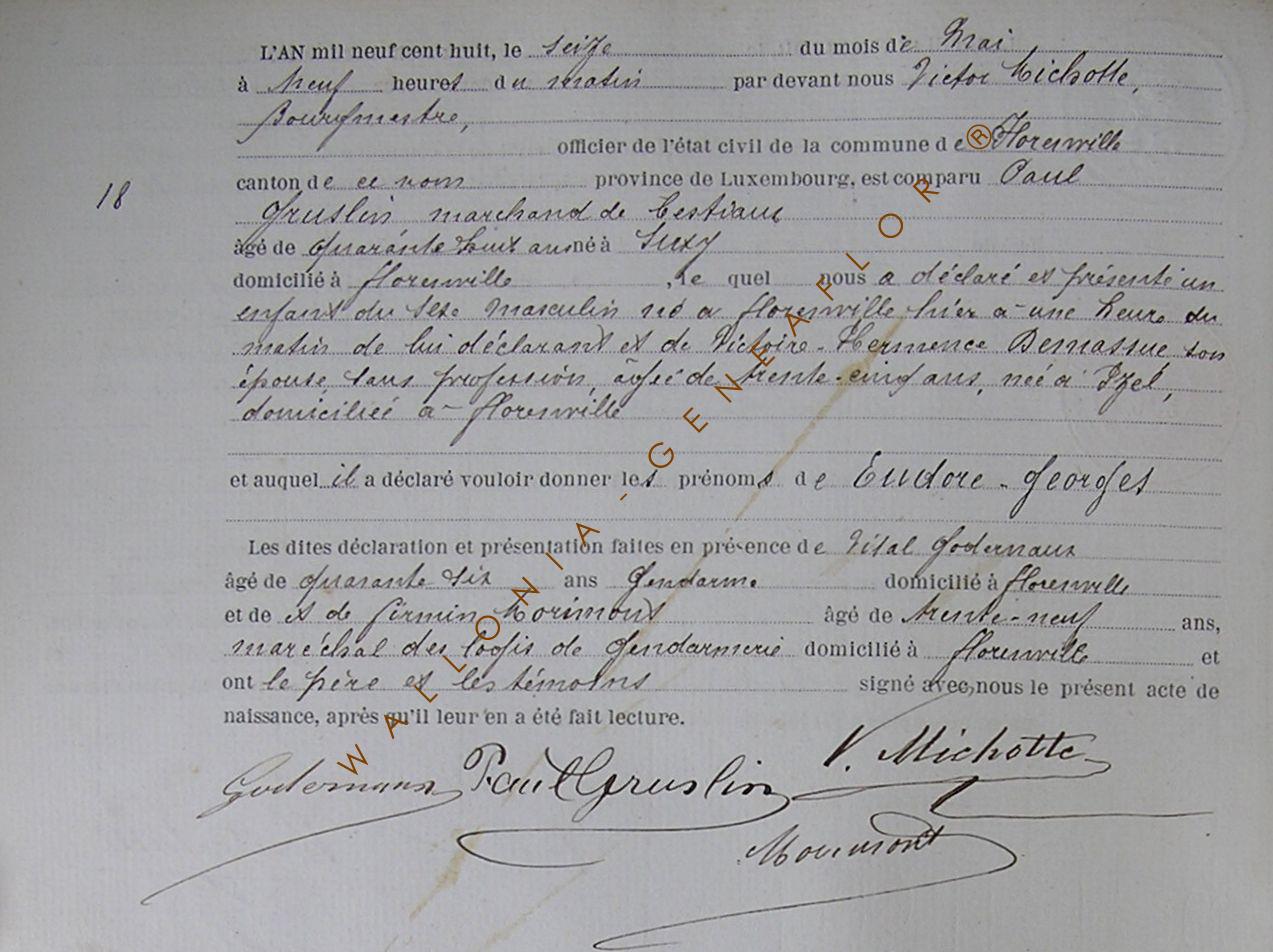 L'AN mil neuf cent huit, le seize du mois de Mai
à Neuf heures du matin par devant nous Victor Michotte,
Bourgmestre,
officier de l'état civil de la commune de ® Florenville
18 canton de ce nom province de Luxembourg, est comparu Paul
Gruslin marchand de bestiaux
âgé de quarante huit ans né à Suxy
domicilié à florenville, le quel nous a déclaré et présenté un
enfant du sexe masculin né a florenville hier a une heure du
matin de lui déclarant et de Victoire-Hermence Demassue son
épouse, sans profession, âgée de trente-cinq ans, née à Izel,
domiciliée a florenville
et auquel il a déclaré vouloir donner les prénoms de Eudore-Georges
Les dites déclaration et présentation faites en présence de Vital Godernaux
âgé de quarante six ans Gendarme domicilié à florenville
et de et de firmin Morimont âgé de trente-neuf ans,
maréchal des logis de Gendarmerie domicilié à florenville et
ont le père et les témoins signé avec nous le présent acte de
naissance, après qu'il leur en a été fait lecture.
Godernaux Paul Gruslin V. Michotte
Morimont
WALLONIA-GENEAFLOR